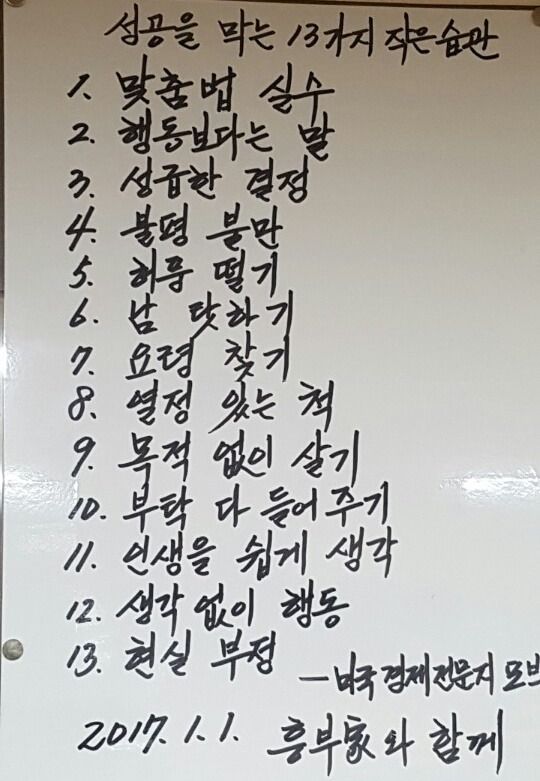 성공을 막는 13가지 작은 습관
1. 맞춤법 실수
2. 행동보다는 말
3. 성급한 결정
4. 불평 불만
5. 허풍 떨기
6. 남 탓하기
7. 요령 찾기
8. 열정 있는 척
9. 목적 없이 살기
10. 부탁 다 들어주기
11. 인생을 쉽게 생각
12. 생각없이 행동
13. 현실 부정
—미국경제전문지
2017. 1. 1. 흥부家와 함께